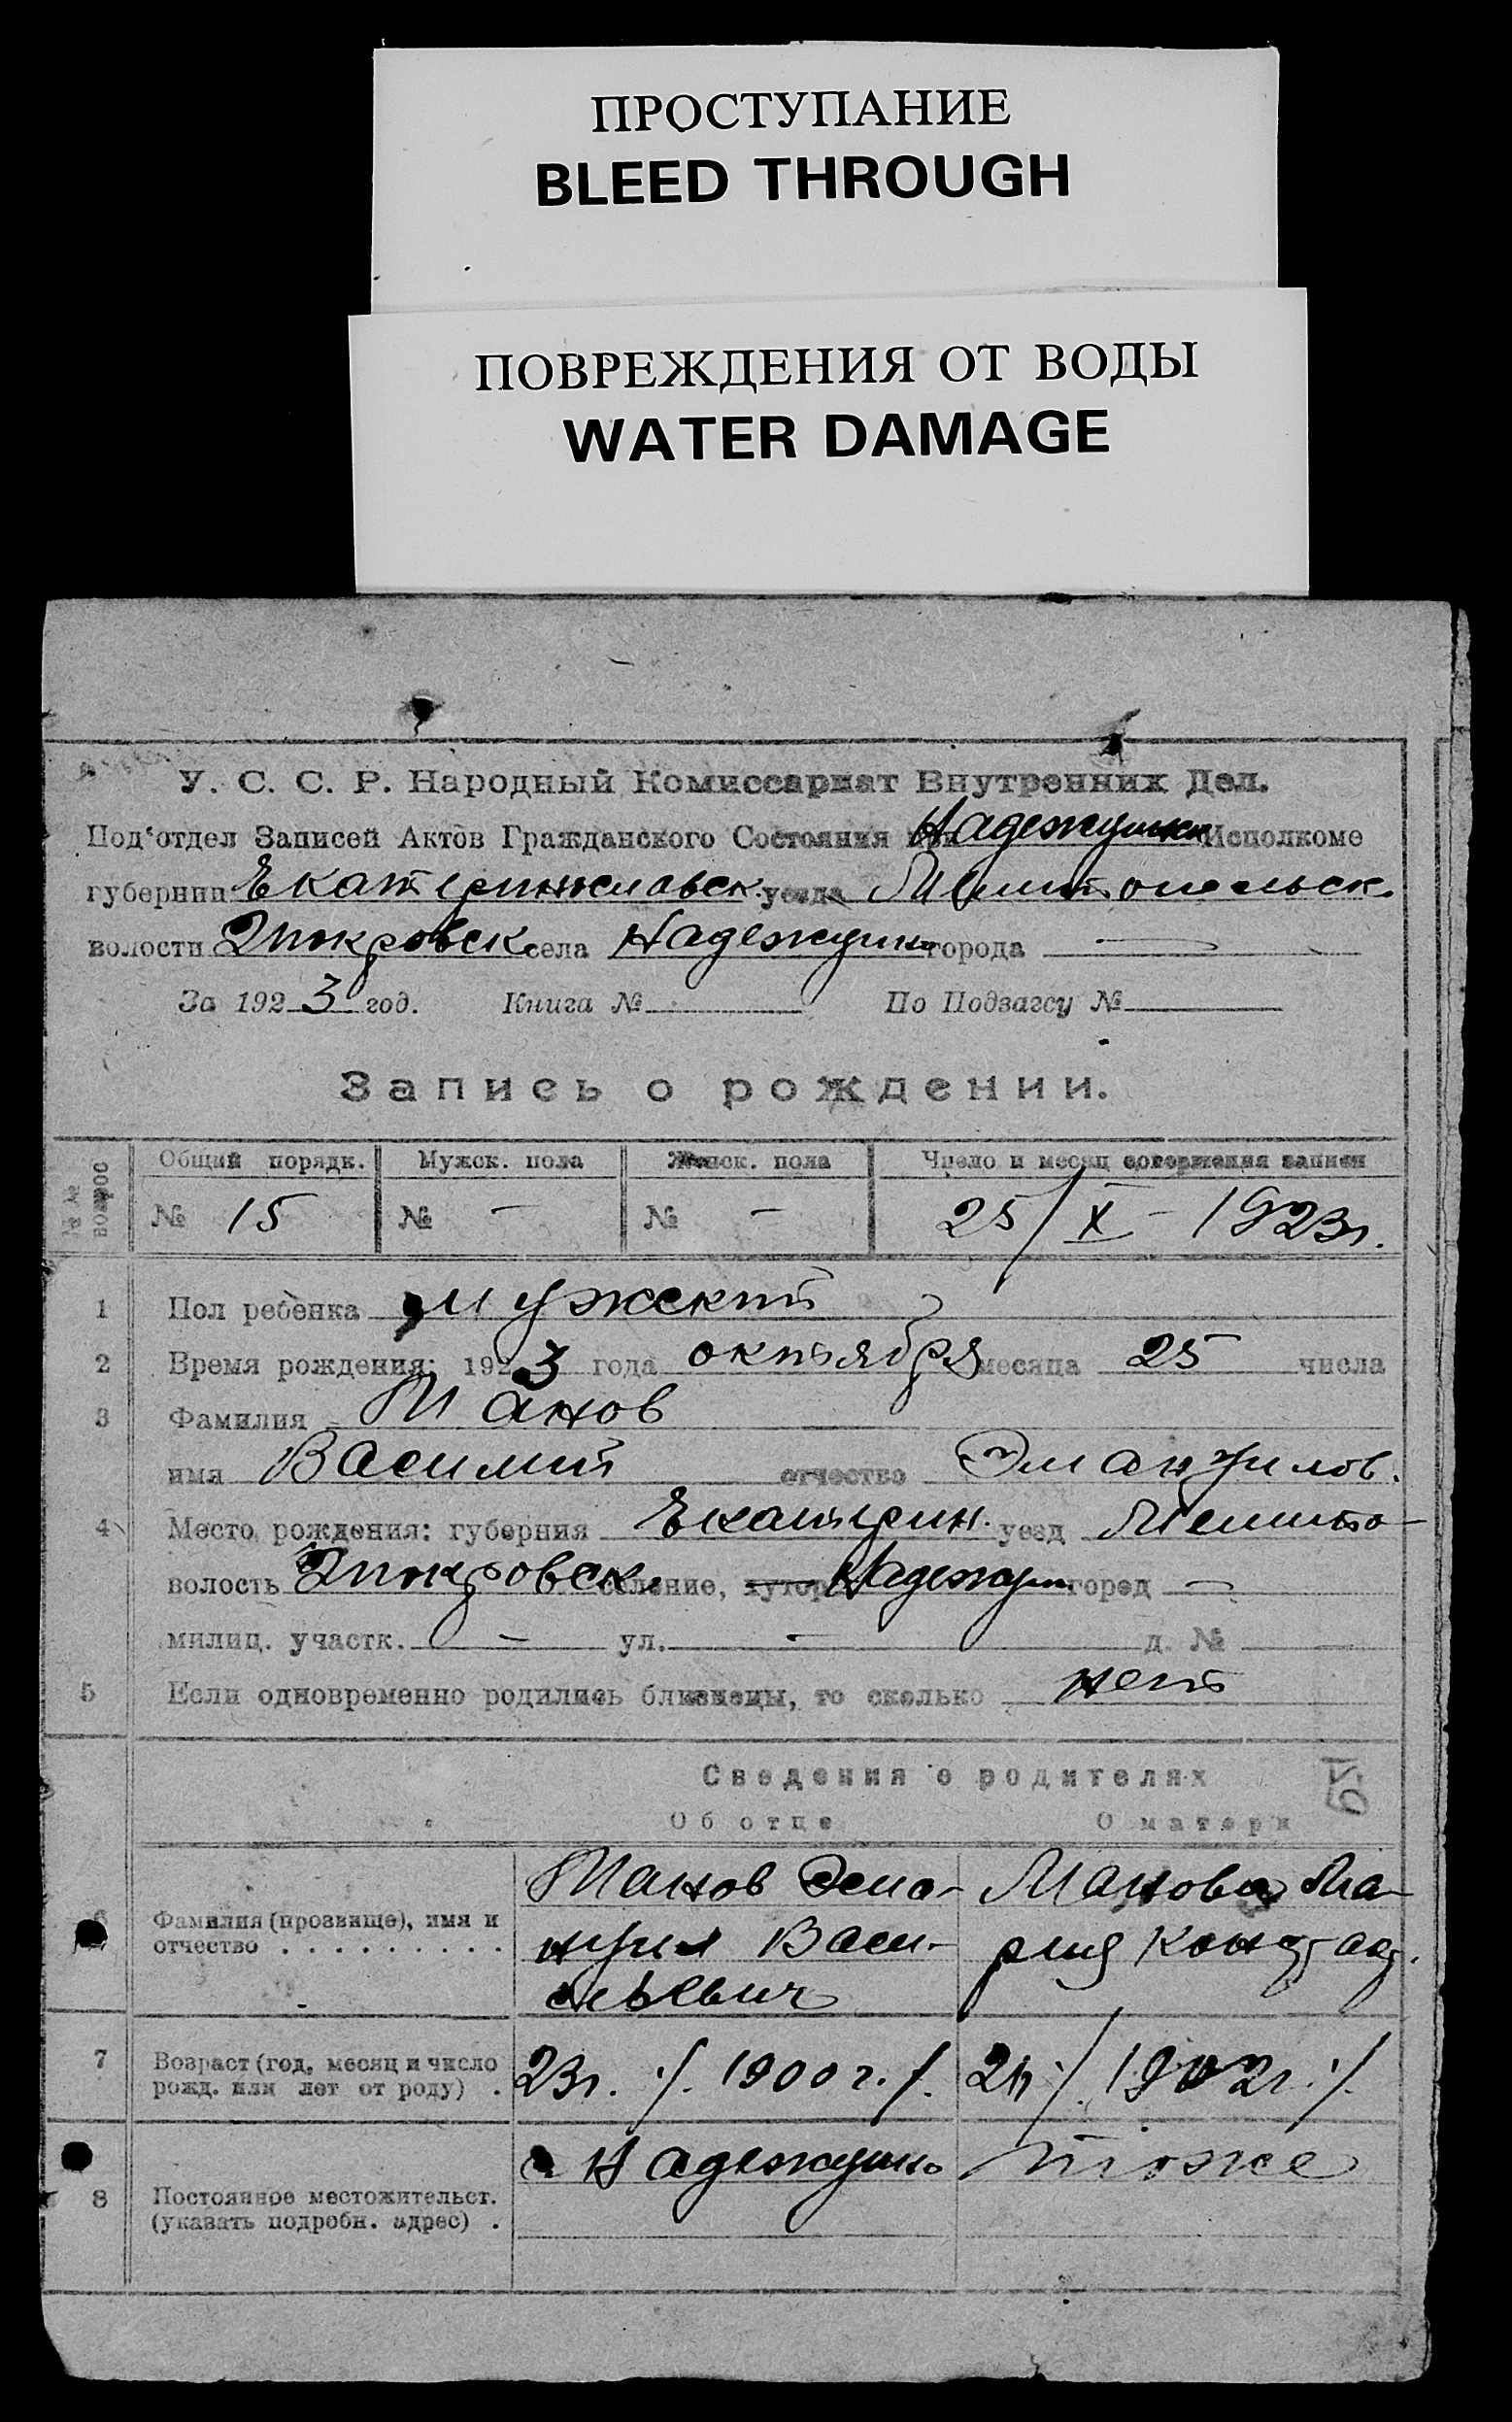 ПРОСТУПАНИЕ
BLEED THROUGH
ПОВРЕЖДЕНИЯ ОТ ВОДЫ
WATER DAMAGE
У. С. С. Р. Народный Комиссариат Внутренних Дел.
Под'отдел Записей Актов Гражданского Состояния при Исполкоме
губернии Екатеринославск. уезда
волости села города —
За 1923 год. Книга № По Подзагсу №
Запись о рождении.
№№ вопрос
Общий порядк. Мужск. пола Женск. пола Число и месяц совершения записи
№ 15 № — № — 25/X — 1923г.
1 Пол ребенка мужский
2 Время рождения: 1923 года октября месяца 25 числа
3 Фамилия Манов
имя Василий отчество
4 Место рождения: губерния Екатерин. уезд Мелито-
волость селение, хутор город —
милиц. участк. — ул. — д. № —
5 Если одновременно родились близнецы, то сколько нет
Сведения о родителях
Об отце О матери
6 Фамилия (прозвище), имя и отчество . . . . . . . . . .
Манов
Васи-
льевич
Манова Ма-
рия Кондрат.
7 Возраст (год, месяц и число рожд. или лет от роду) .
23г. ./. 1900г. /. ./. 1902г. ./.
8 Постоянное местожительст. (указать подробн. адрес) .
тоже